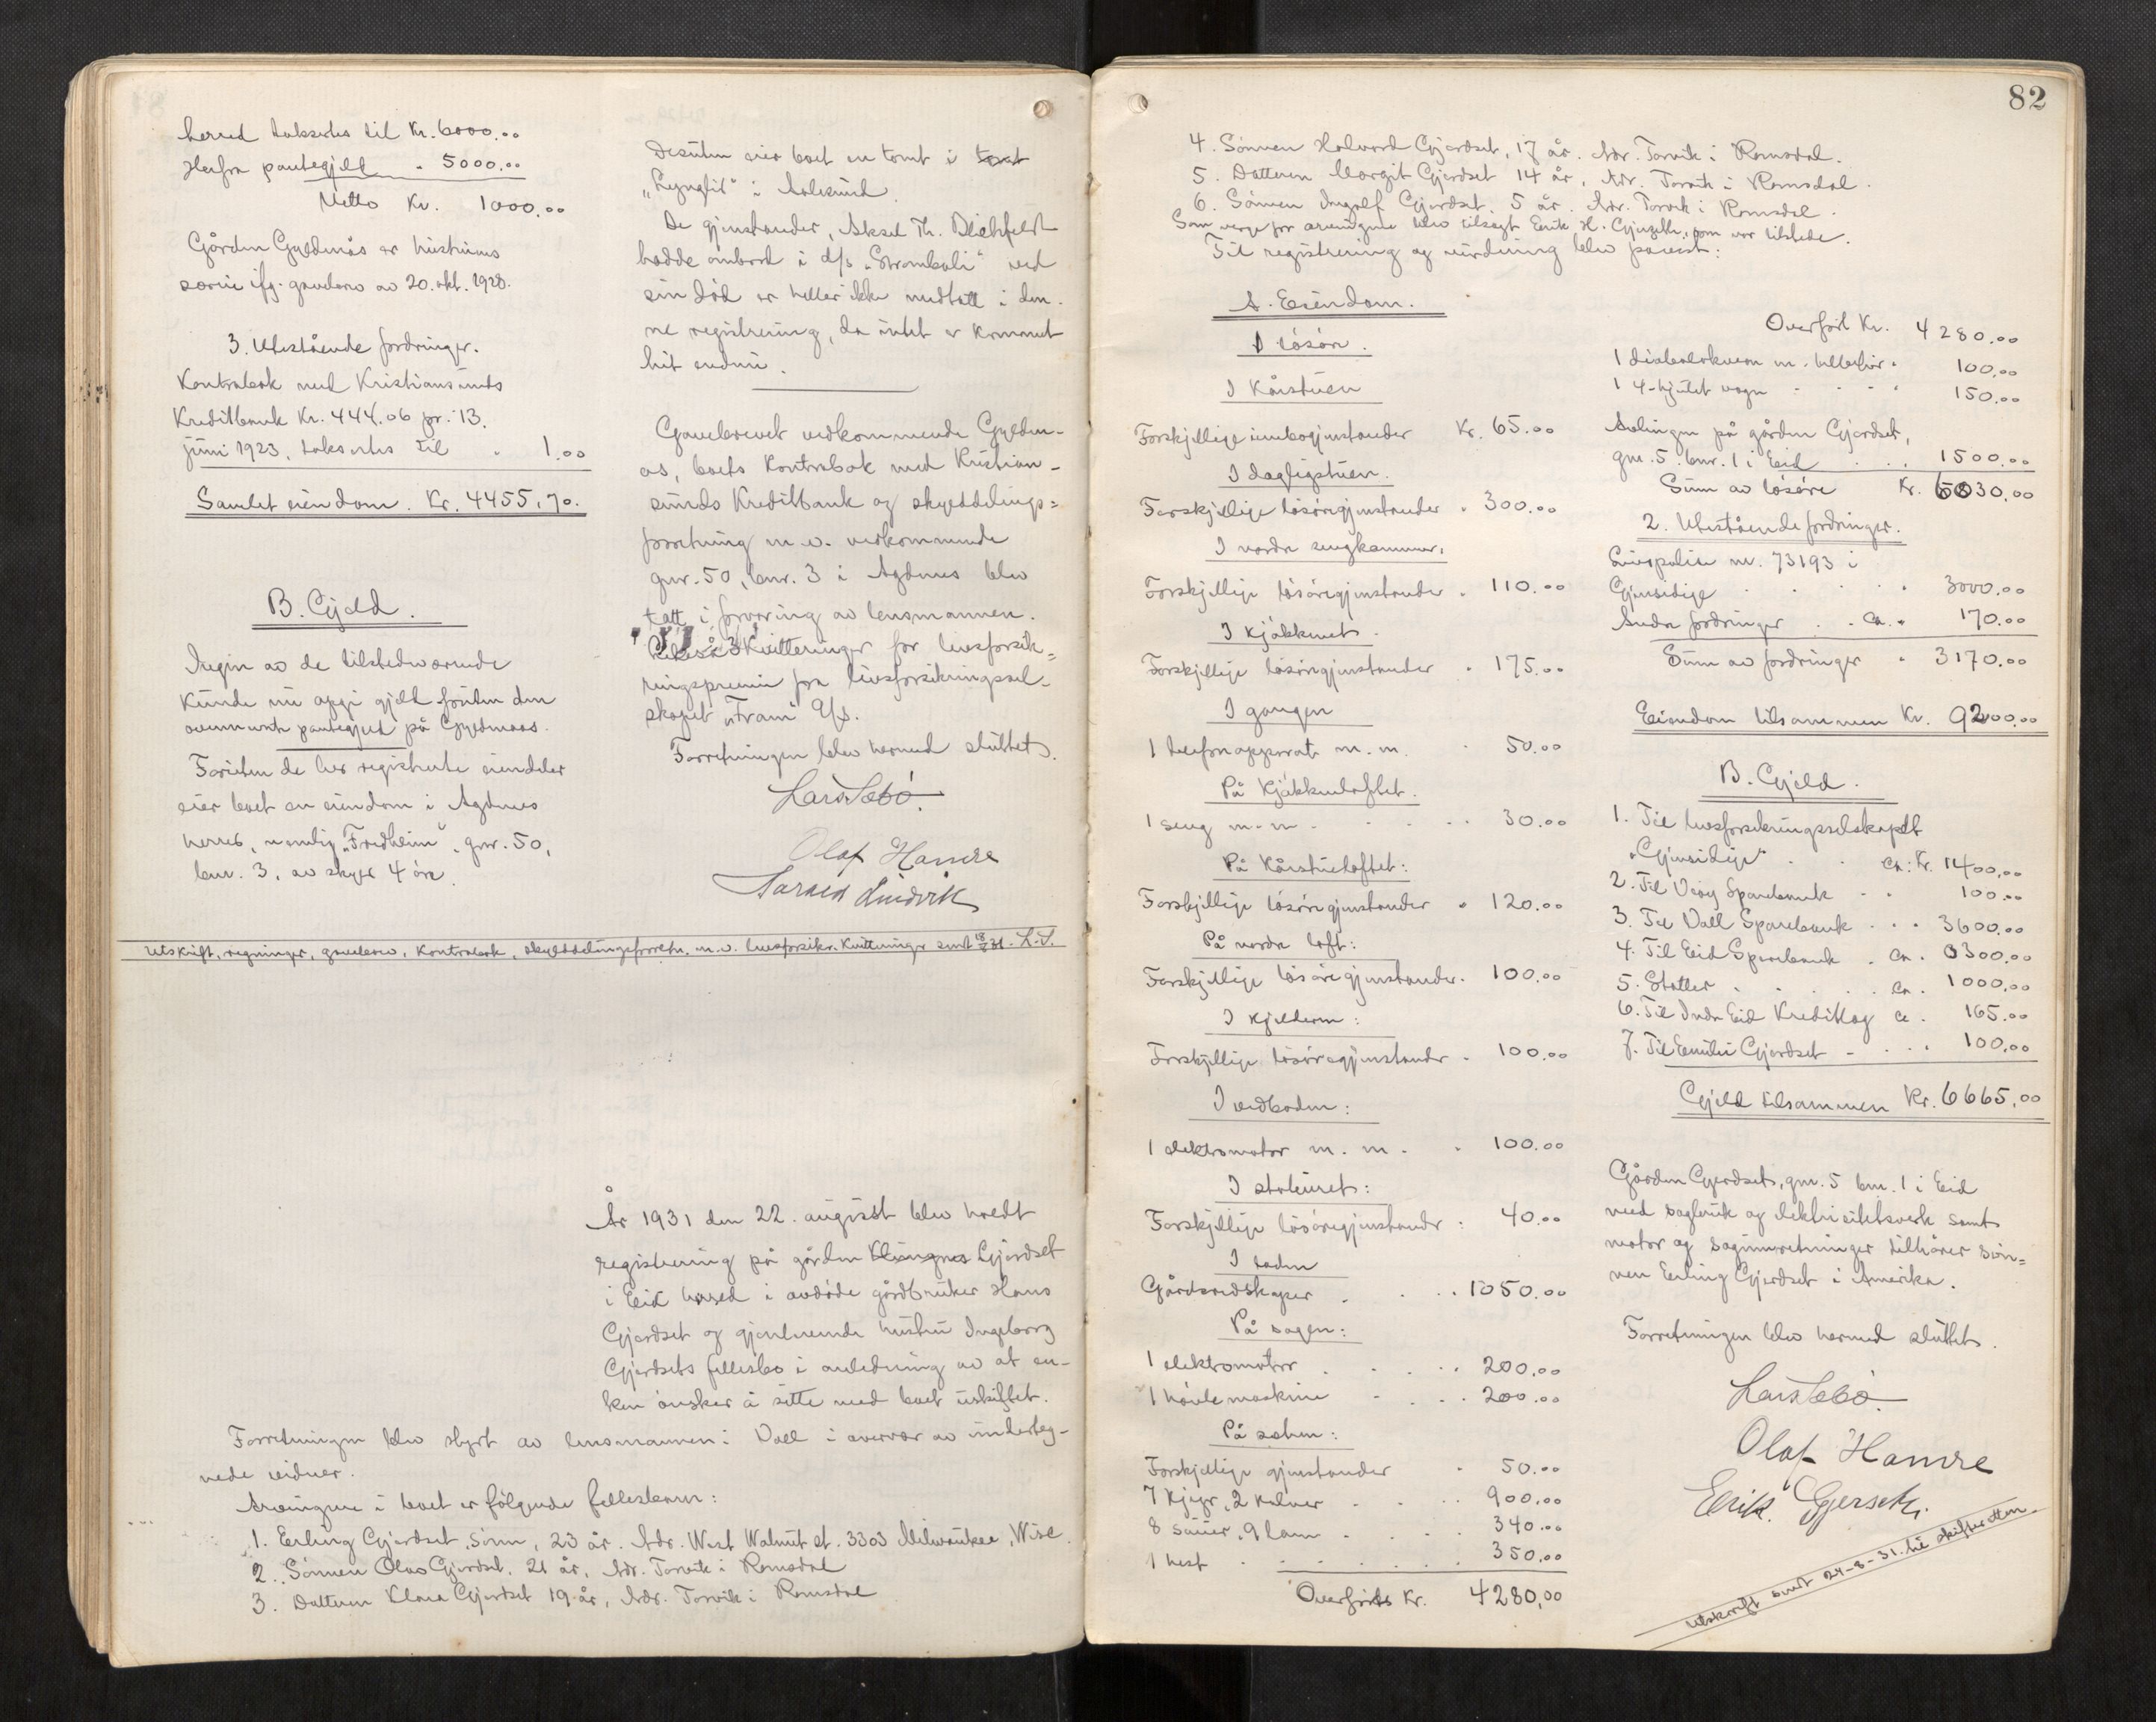 herred taksertes til Kr. 6000.00
Herfra pantegjeld " 5000.00
Netto Kr. 1000.00
Gården Gyldnås er hustruens
særeie ifg. gavebrev av 20. okt. 1928.
3. Utestående fordringer.
Kontrabok med Kristiansunds
Kreditbank Kr. 444.06 pr. 13.
juni 1923, taksertes til " 1.00
Samlet eiendom. Kr. 4455,70.
B. Gjeld.
Ingen av de tilstedeværende
kunde nu opgi gjeld foruten den
ovennevnte pantegjeld på Gyldnaas.
Foruten de her registrerte eiendeler
eier boet en eiendom i Agdenes
herred, nemlig "Fredheim", gnr. 50,
bnr. 3, av skyld 4 øre.
Desuten eier boet en tomt i
i Aalesund.
De gjenstander, Aksel Th. Blichfeldt
hadde ombord i d/s "Stromboli" ved
sin død er heller ikke medtatt i den-
ne registrering, da intet er kommet
hit endnu.
Gavebrevet vedkommende Gylden-
ås, boets kontrabok med Kristian-
sunds Kreditbank og skylddelings=
forretning m.v. vedkommende
gnr. 50, bnr. 3 i Agdenes blev
tatt i forvaring av lensmannen.
3 kvitteringer for livsforsik=
ringspremie fra livsforsikringssel-
skapet "Fram" A/S.
Forretningen blev hermed sluttet.
Lars Sebø.
Olaf Hamre
Lindvik
Utskrift, regninger, gavebrev, kontrabok, skylddelingsforretn. m.v. livsforsikr. kvitteringer sendt 18/8 31. L.S.
År 1931 den 22. august blev holdt
registrering på gården Klungnes Gjerdset
i Eid herred i avdøde gårdbruker Hans
Gjerdset og gjenlevende hustru Ingeborg
Gjerdsets fellesbo i anledning av at en-
ken ønsker å sitte med boet uskiftet.
Forretningen blev styrt av lensmannen i Voll i overvær av underteg-
nede vidner.
Arvingene i boet er følgende fellesbarn:
1. Erling Gjerdset, sønn, 23 år. Adr. West Walnut st. 3303 Milwaukee, Wisc.
2. Sønnen Olav Gjerdset, 21 år, Adr. Torvik i Romsdal
3. Datteren Klara Gjerdset 19 år, Adr. Torvik i Romsdal
82
4. Sønnen Halvard Gjerdset, 17 år. Adr. Torvik i Romsdal.
5. Datteren Margit Gjerdset 14 år, Adr. Torvik i Romsdal.
6. Sønnen Ingolf Gjerdset, 5 år. Adr. Torvik i Romsdal.
Som verge for arvingene blev tilsagt Erik H. Gjerseth, som var tilstede.
Til registrering og vurdering blev påvist:
A. Eiendom.
1 løsøre.
I Kårstuen
Forskjellige innbogjenstander Kr. 65.00
I dagligstuen.
Forskjellige løsøregjenstander " 300.00
I nordre sengkammer.
Forskjellige løsøregjenstander " 110.00
I kjøkkenet.
Forskjellige løsøregjenstander " 175.00
I gangen
1 telefonapparat m. m. " 50.00
På kjøkkenloftet.
1 seng m. m. 30.00
På Kårstueloftet:
Forskjellige løsøregjenstander " 120.00
På nordre loft:
Forskjellige løsøregjenstander. 100.00
I kjelderen:
Forskjellige løsøregjenstander " 100.00
I vedboden:
1 elektromotor m. m. " 100.00
I stabburet:
Forskjellige løsøregjenstander : 40.00
I laden
Gårdsredskaper 1050.00
På sagen:
1 elektromotor 200.00
1 høvlemaskine 200.00
På setren:
Forskjellige gjenstander " 50.00
7 kjyr, 2 kalver 900.00
8 sauer, 9 lam 340.00
1 hest 350.00
Overføres Kr. 4280,00
Overført Kr. 4280.00
1 100.00
1 4-hjulet vogn 150.00
Avlingen på gården Gjerdset,
gnr. 5. bnr. 1 i Eid 1500.00
Sum av løsøre Kr. 6030.00
2. Utestående fordringer.
Livspolise nr. 73193 i
Gjensidige 3000.00
Andre fordringer ca. " 170.00
Sum av fordringer " 3170.00
Eiendom tilsammen Kr. 9200.00
B. Gjeld.
1. Til livsforsikringsselskapet
"Gjensidige" ca: Kr. 1400.00
2. Til Veøy Sparebank 100.00
3. Til Voll Sparebank 3600.00
4. Til Eid Sparebank ca. 300.00
5. Skatter ca. 1000.00
6. Til Indre Eid Kreditlag ca. 165.00
7. Til Emilie Gjerdset 100.00
Gjeld tilsammen Kr. 6665.00
Gården Gjerdset, gnr. 5 bnr. 1 i Eid
med sagbruk og elektrisitetsverk samt
motor og saginnretninger tilhører søn=
nen Erling Gjerdset i Amerika.
Forretningen blev hermed sluttet.
Lars Sebø.
Olaf Hamre
Erik Gjerseth.
Utskrift sendt 24-8-31 til skifteretten